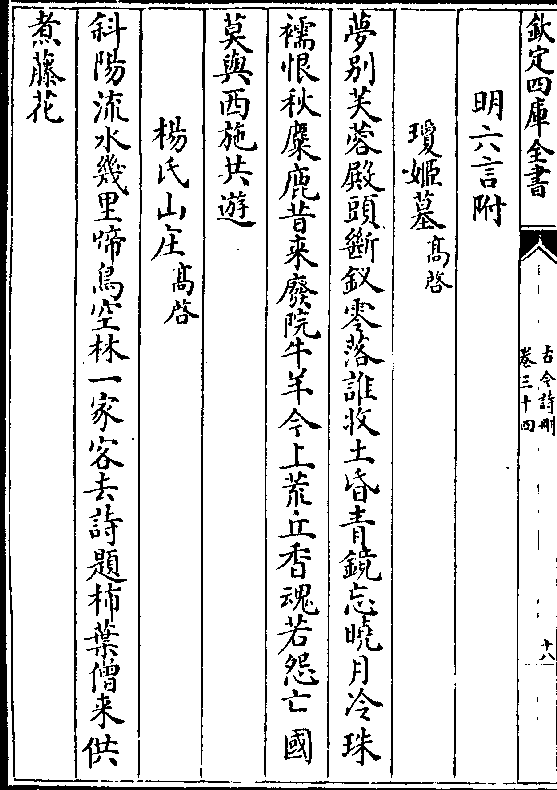 欽定四庫全書
古今詩刪
卷三十四
十八
明六言附
瓊姬墓高啓
夢別芙蓉殿頭斷釵零落誰收土昏青鏡忘曉月冷珠
襦恨秋麋鹿昔來廢院牛羊今上荒丘香魂若怨亡國
莫與西施共遊
楊氏山庄高啓
斜陽流水幾里啼鳥空林一家客去詩題柿葉僧来供
煮藤花